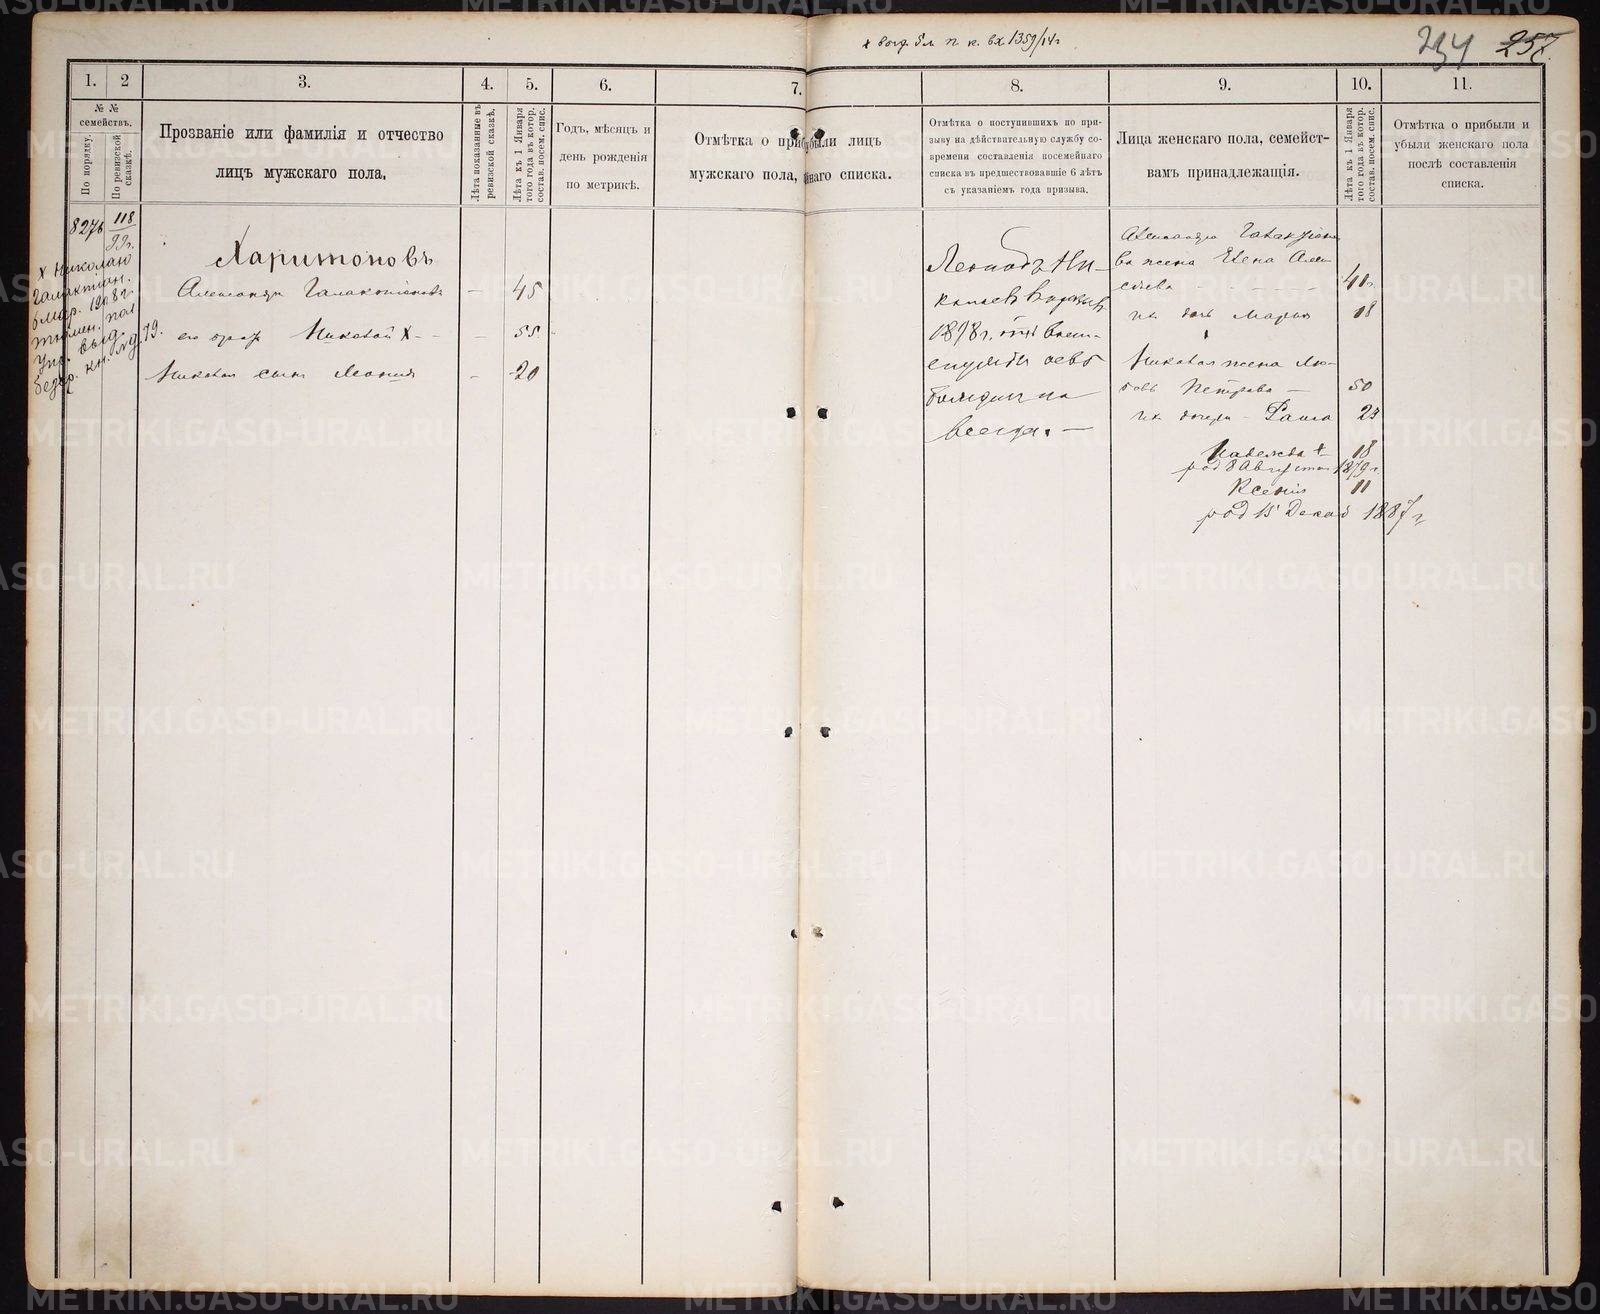 п. к. вх 1359/14 г
234 257
1. 2 3. 4. 5. 6. 7. 8. 9. 10. 11.
№ № семействъ.
По порядку.
По ревизской сказкѣ.
Прозваніе или фамилія и отчество
лицъ мужскаго пола.
Лѣта показанные въ ревизской сказкѣ.
Лѣта къ 1 Января того года въ котор. состав. посем. спис.
Годъ, мѣсяцъ и
день рожденія
по метрикѣ.
Отмѣтка о при были лицъ
мужскаго пола, наго списка.
Отмѣтка о поступившихъ по при-
зыву на дѣйствительную службу со-
времени составленія посемейнаго
списка въ предшествовавшіе 6 лѣтъ
съ указаніемъ года призыва.
Лица женскаго пола, семейст-
вамъ принадлежащія.
Лѣта къ 1 Января того года въ котор. состав. посем. спис.
Отмѣтка о прибыли и
убыли женскаго пола
послѣ составленія
списка.
827 118
Х Николаю
Галактіон.
1908 г.
тюмен. пол
упр. выд.
кн. 79.
Харитоновъ
Александръ Галактіоновъ - 45
его братъ Николай Х - - 55
Николая сынъ Леонидъ - 20
Леонидъ Ни-
1898 г. отъ воен-
службы осво
божденъ на
всегда. —
Александра Галактіоно
ва жена Елена Алек
сѣева - - - - - 40
ихъ дочь Марья 18
Николая жена Лю-
бовь Петрова — 50
ихъ дочери - Раиса 23
Надежда + 18
род 8 Августа 1879 г
Ксенія 11
род 15 Декаб 1887 г
METRIKI.GASO-URAL.RU